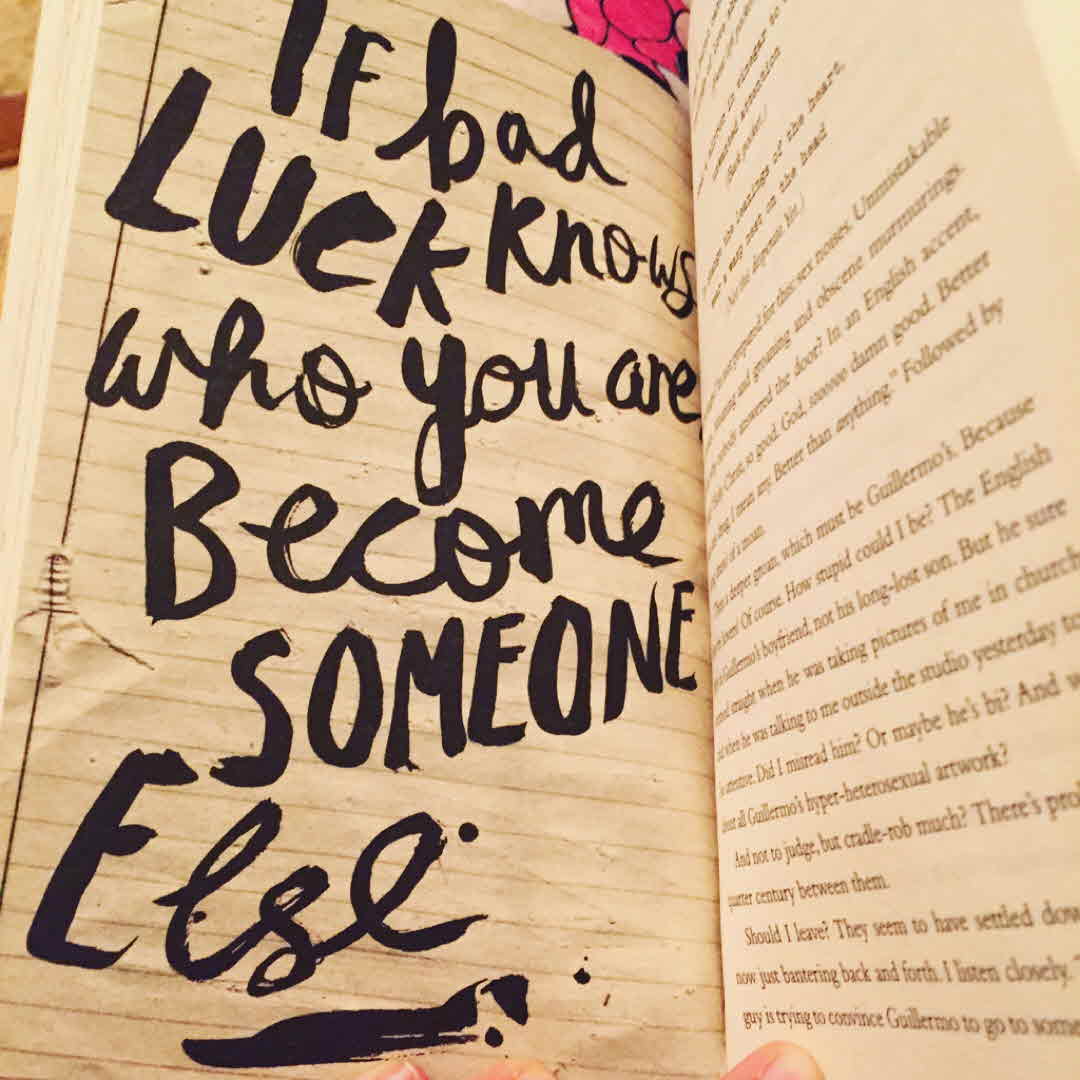 IF bad
LUCK knows
who you are,
Become
SOMEONE
Else.
sex noises. Unmistakable
and groaning and obscene murmurings.
answered the door? In an English accent,
so good. God, sooooo damn good. Better
I mean any. Better than anything." Followed by
of a moan.
deeper groan, which must be Guillermo's. Because
Of course. How stupid could I be? The English
Guillermo's boyfriend, not his long-lost son. But he sure
straight when he was taking pictures of me in church
when he was talking to me outside the studio yesterday
Did I misread him? Or maybe he's bi? And
all Guillermo's hyper-heterosexual artwork?
And not to judge, but cradle-rob much? There's
quarter century between them.
Should I leave? They seem to have settled
now just bantering back and forth. I listen closely.
guy is trying to convince Guillermo to go to